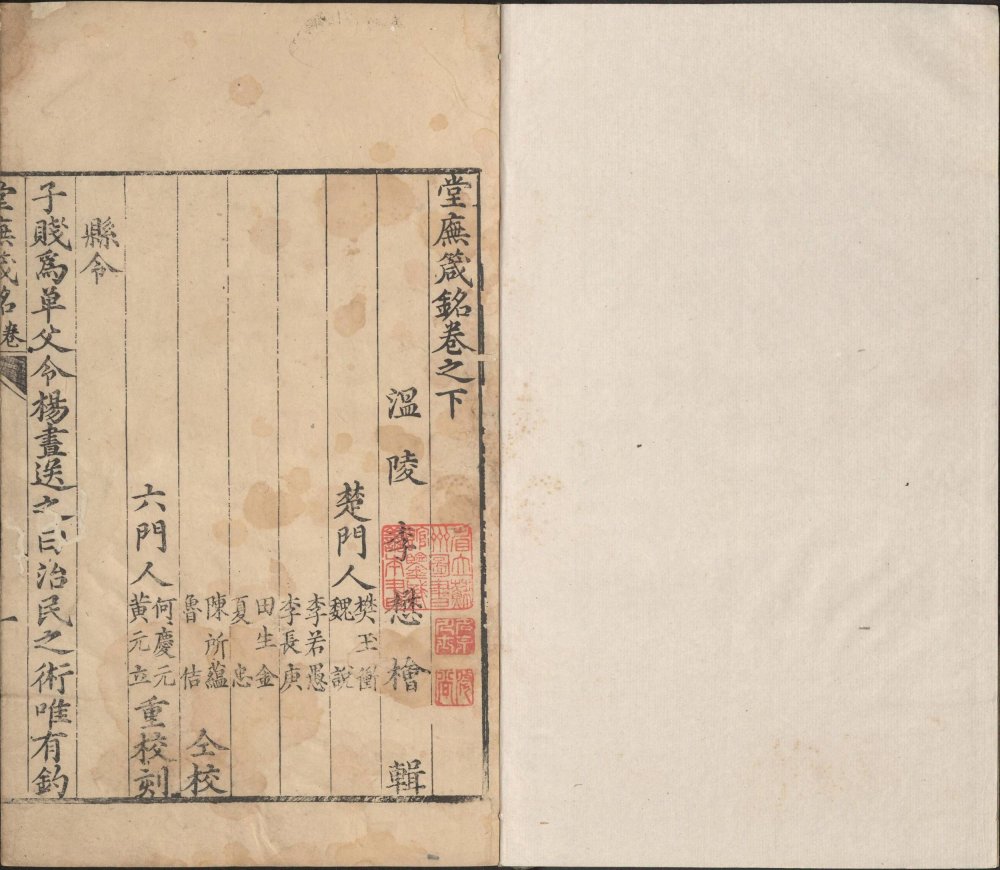 堂廡箴銘卷之下
溫陵李懋檜輯
楚門人
樊玉衡
魏說
李若愚
李長庚
田生金
夏忠
陳所蘊
魯佶
仝校
六門人
何慶元
黃元立
重校刻
縣令
子賤爲单父令楊晝送之曰治民之術唯有釣
堂廡箴銘卷
一